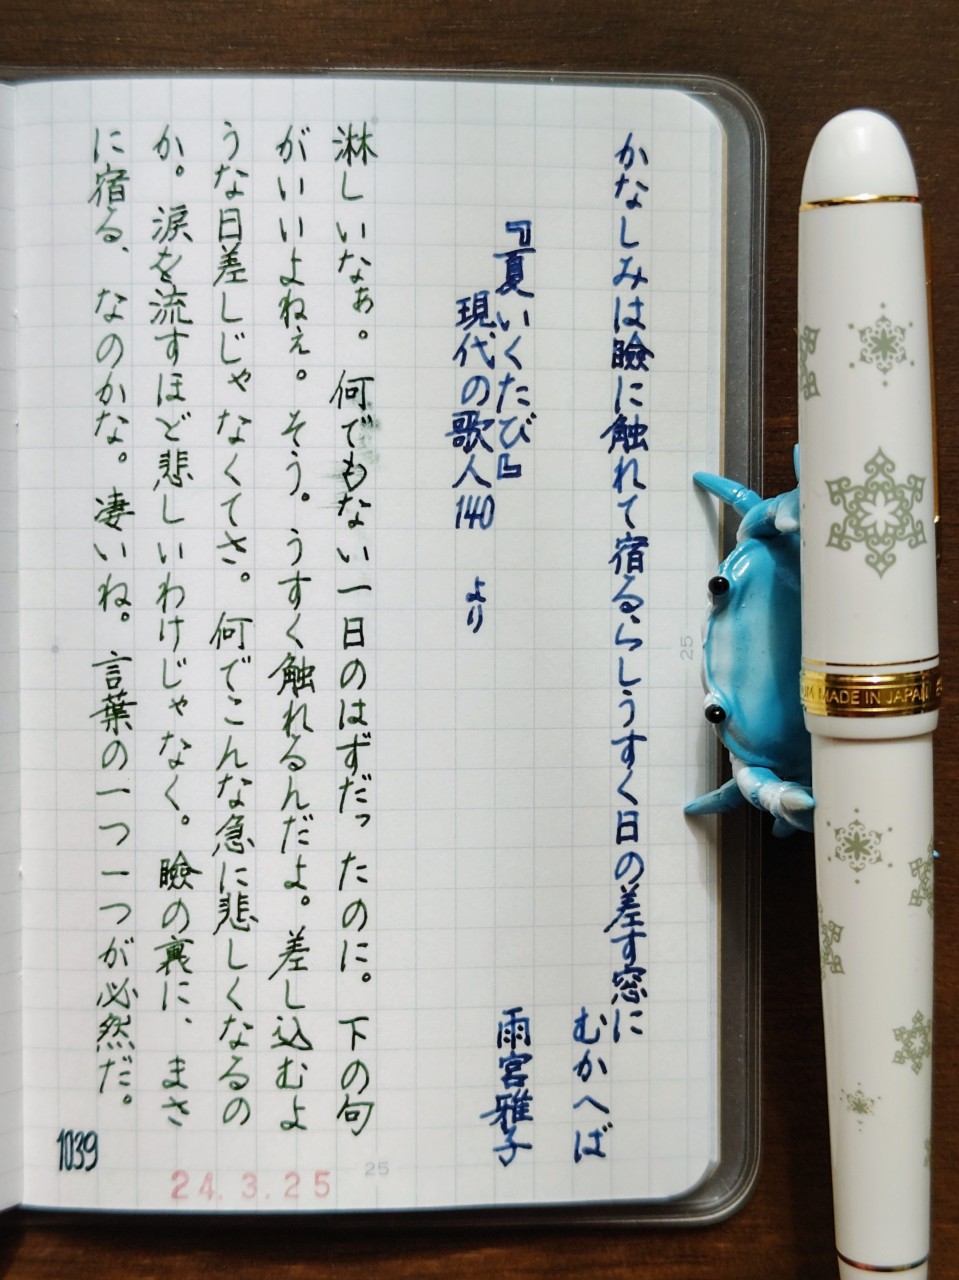 かなしみは瞼に触れて宿るらしうすく日の差す窓に
むかへば
雨宮雅子
『夏いくたび』
現代の歌人140 より
淋しいなぁ。何でもない一日のはずだったのに。下の句
がいいよねぇ。そう。うすく触れるんだよ。差し込むよ
うな日差しじゃなくてさ。何でこんな急に悲しくなるの
か。涙を流すほど悲しいわけじゃなく。瞼の裏に、まさ
に宿る、なのかな。凄いね。言葉の一つ一つが必然だ。
1039
24.3.25
25
25
UM MADE IN JAPAN